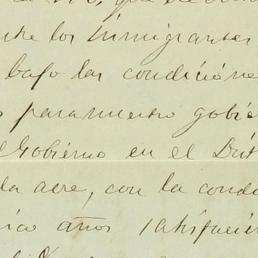 los inmigrantes
bajo las condicione
para nuestro gobie
Gobierno en el Dist
da acre, con la condi
años satisfacien